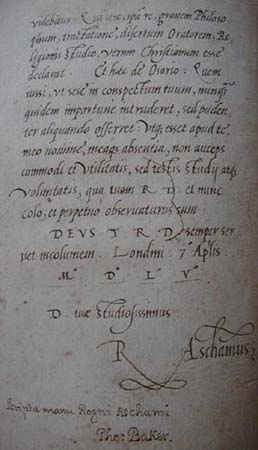 videbitur. Qui sese, ipsa re, gravem Philoso
phum, tractatione, disertum Oratorem, Re,
ligionis studio, verum Christianum esse
declarat. Et hæc de Osorio: Quem
iussi, ut sese in conspectum tuum, nunq
quidem importunè intruderet, sed puden,
ter aliquando offerret. Utq esset apud te,
meo nomine, meaq absentia, non
commodi et utilitatis, sed testis studij atq
voluntatis, qua tuam R D. et nunc
colo, et perpetuò observaturus sum
DEVS T R D semper ser
vet incolumem. Londini 7° Aplis.
M° D° L° V°
D. tuæ studiosissimus
R Aschamus
Scripta manu Rogeri Aschami
Tho: Baker.